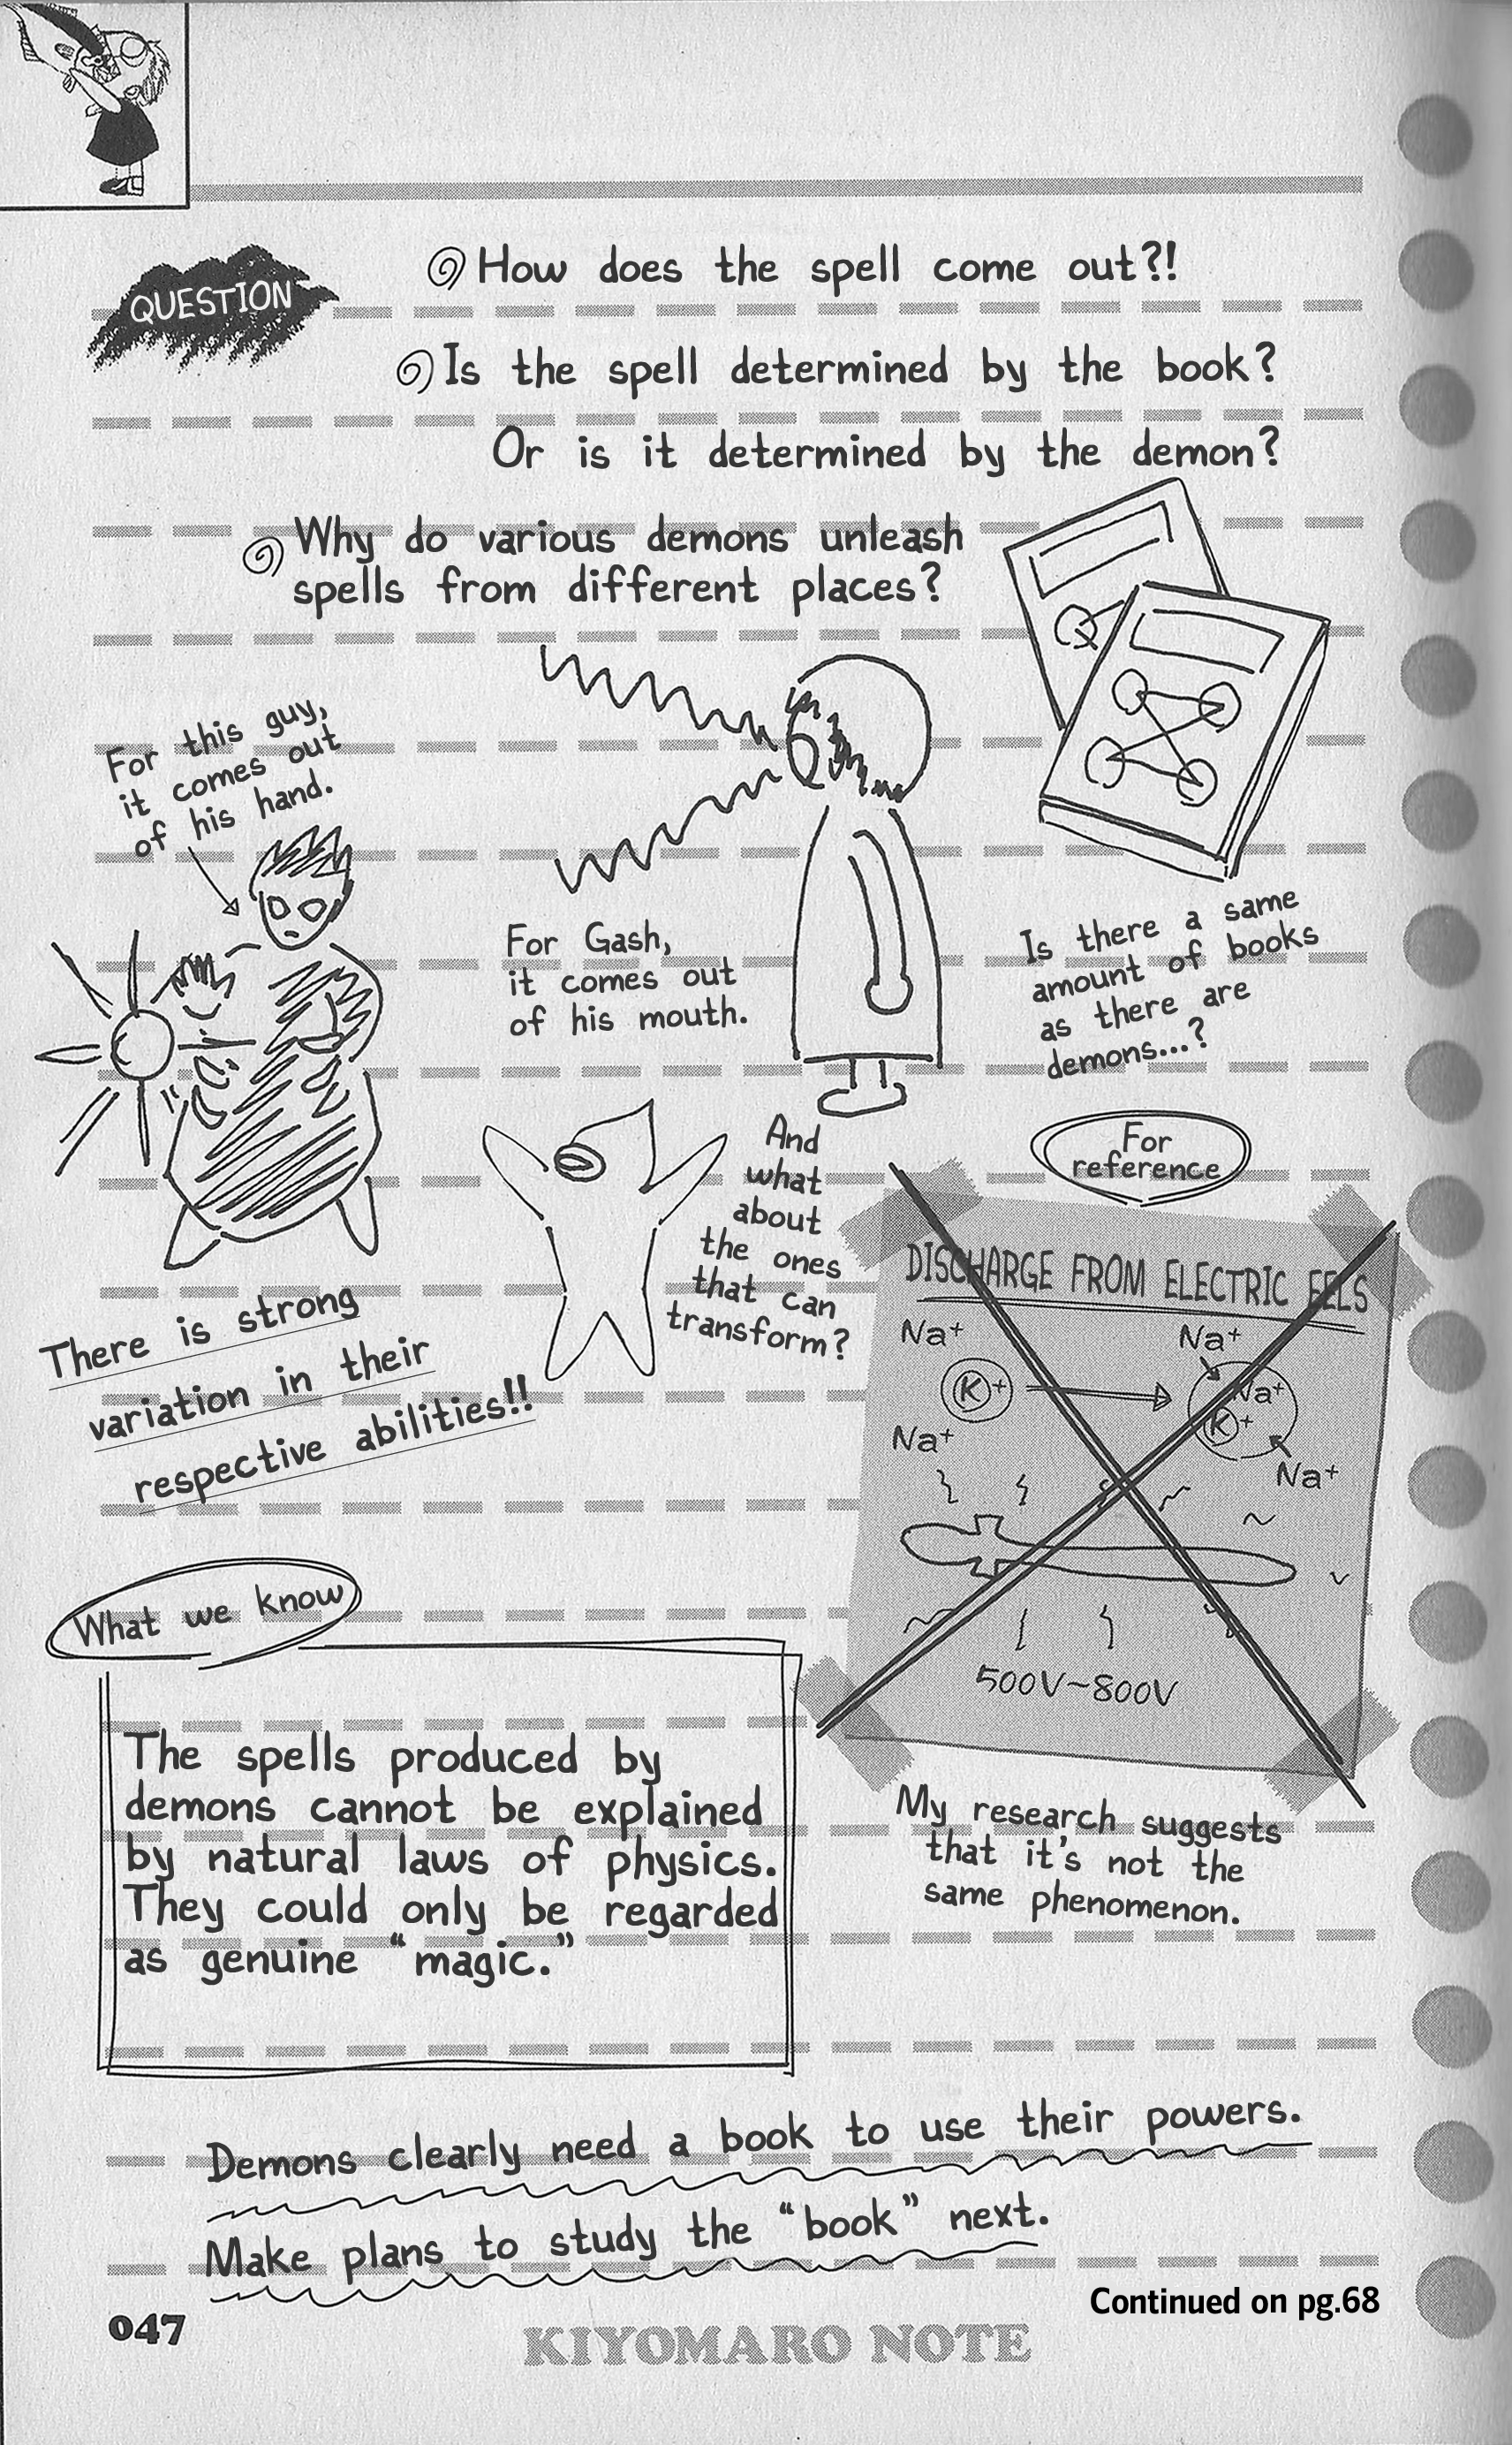 QUESTION
How does the spell come out?!
Is the spell determined by the book?
Or is it determined by the demon?
Why do various demons unleash
spells from different places?
For this guy,
it comes out
of his hand.
For Gash,
it comes out
of his mouth.
Is there a same
amount of books
as there are
demons...?
And
what
about
the ones
that can
transform?
There is strong
variation in their
respective abilities!!
For
reference
DISCHARGE FROM ELECTRIC EELS
Na+
Na+
K+
Na+
K+
Na+
Na+
500V~800V
My research suggests
that it's not the
same phenomenon.
What we know
The spells produced by
demons cannot be explained
by natural laws of physics.
They could only be regarded
as genuine “magic.”
Demons clearly need a book to use their powers.
Make plans to study the “book” next.
Continued on pg.68
047
KIYOMARO NOTE